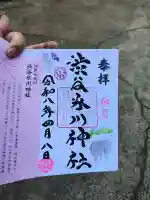 奉拝
渋谷氷川神社
令和八年四月八日
渋谷氷川神社